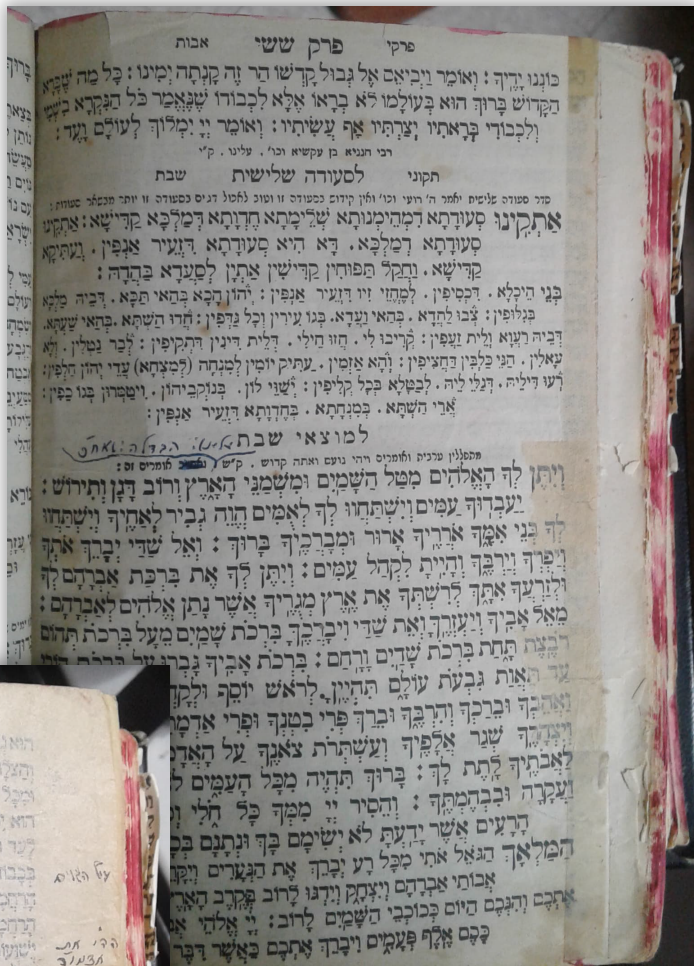 פרקי פרק ששי אבות
כּוֹנְנוּ יָדֶיךָ: וְאוֹמֵר וַיְבִיאֵם אֶל גְּבוּל קָדְשׁוֹ הַר זֶה קָנְתָה יְמִינוֹ: כָּל מַה שֶּׁבָּרָא
הַקָּדוֹשׁ בָּרוּךְ הוּא בְּעוֹלָמוֹ לֹא בְרָאוֹ אֶלָּא לִכְבוֹדוֹ שֶׁנֶּאֱמַר כֹּל הַנִּקְרָא בִשְׁמִי
וְלִכְבוֹדִי בְּרָאתִיו יְצַרְתִּיו אַף עֲשִׂיתִיו: וְאוֹמֵר יְיָ יִמְלוֹךְ לְעוֹלָם וָעֶד:
רבי חנניא בן עקשיא וכו'. עלינו. ק"י
תקוני לסעודה שלישית שבת
סדר סעודה שלישית יאמר ה' רועי וכו' ואין קידוש בסעודה זו וטוב לאכול דגים בסעודה זו יותר מבשאר סעודות:
אַתְקִינוּ סְעוּדָתָא דִמְהֵימְנוּתָא שְׁלֵימָתָא חֶדְוָתָא דְּמַלְכָּא קַדִּישָׁא: אַתְקִינוּ
סְעוּדָתָא דְמַלְכָּא. דָּא הִיא סְעוּדָתָא דִּזְעֵיר אַנְפִּין. וְעַתִּיקָא
קַדִּישָׁא. וַחֲקַל תַּפּוּחִין קַדִּישִׁין אַתְיָן לְסַעֲדָא בַּהֲדֵהּ:
בְּנֵי הֵיכָלָא. דִּכְסִיפִין. לְמֶחֱזֵי זִיו דִּזְעֵיר אַנְפִּין: יְהוֹן הָכָא. בְּהַאי תַּכָּא. דְּבֵיהּ מַלְכָּא
בְּגִלּוּפִין: צְבוּ לַחֲדָא. בְּהַאי וַעֲדָא. בְּגוֹ עִירִין וְכָל גַּדְפִין: חֲדוּ הַשְׁתָּא. בְּהַאי שַׁעְתָּא.
דְּבֵיהּ רַעֲוָא וְלֵית זַעֲפִין: קְרִיבוּ לִי. חֲזוּ חֵילִי. דְּלֵית דִּינִין דִּתְקִיפִין: לְבַר נַטְלִין. וְלָא
עָאלִין. הַנֵּי כַּלְבִּין דַּחֲצִיפִין: וְהָא אַזְמִין. עַתִּיק יוֹמִין לְמִנְחָה (לְמִצְחָא) עֲדֵי יְהוֹן חַלְפִין:
רְעוּ דִילֵיהּ. דְּגַלֵּי לֵיהּ. לְבַטָּלָא בְּכָל קְלִיפִין: יְשַׁוֵּי לוֹן. בְּנוֹקְבֵיהוֹן. וִיטַמְּרוּן בְּגוֹ כֵפִין:
אֲרֵי הַשְׁתָּא. בְּמִנְחָתָא. בְּחֶדְוָתָא דִּזְעֵיר אַנְפִּין:
למוצאי שבת
מתפללין ערבית ואומרים ויהי נועם ואתה קדוש. ק"ש אומרים זה:
וְיִתֶּן לְךָ הָאֱלֹהִים מִטַּל הַשָּׁמַיִם וּמִשְׁמַנֵּי הָאָרֶץ וְרוֹב דָּגָן וְתִירוֹשׁ:
יַעַבְדוּךָ עַמִּים וְיִשְׁתַּחֲווּ לְךָ לְאֻמִּים הֱוֵה גְבִיר לְאַחֶיךָ וְיִשְׁתַּחֲווּ
לְךָ בְּנֵי אִמֶּךָ אֹרְרֶיךָ אָרוּר וּמְבָרֲכֶיךָ בָּרוּךְ: וְאֵל שַׁדַּי יְבָרֵךְ אֹתְךָ
וְיַפְרְךָ וְיַרְבֶּךָ וְהָיִיתָ לִקְהַל עַמִּים: וְיִתֶּן לְךָ אֶת בִּרְכַּת אַבְרָהָם לְךָ
וּלְזַרְעֲךָ אִתָּךְ לְרִשְׁתְּךָ אֶת אֶרֶץ מְגֻרֶיךָ אֲשֶׁר נָתַן אֱלֹהִים לְאַבְרָהָם:
מֵאֵל אָבִיךָ וְיַעְזְרֶךָּ וְאֵת שַׁדַּי וִיבָרֲכֶךָּ בִּרְכֹת שָׁמַיִם מֵעָל בִּרְכֹת תְּהוֹם
רֹבֶצֶת תָּחַת בִּרְכֹת שָׁדַיִם וָרָחַם: בִּרְכֹת אָבִיךָ גָּבְרוּ עַל בִּרְכֹת הוֹרַי
עַד תַּאֲוַת גִּבְעֹת עוֹלָם תִּהְיֶיןָ לְרֹאשׁ יוֹסֵף וּלְקָדְ
וַאֲהֵבְךָ וּבֵרַכְךָ וְהִרְבֶּךָ וּבֵרַךְ פְּרִי בִטְנְךָ וּפְרִי אַדְמָ
וְיִצְהָרֶךָ שְׁגַר אֲלָפֶיךָ וְעַשְׁתְּרֹת צֹאנֶךָ עַל הָאֲדָמָ
לַאֲבֹתֶיךָ לָתֶת לָךְ: בָּרוּךְ תִּהְיֶה מִכָּל הָעַמִּים לֹ
וַעֲקָרָה וּבִבְהֶמְתֶּךָ: וְהֵסִיר יְיָ מִמְּךָ כָּל חֹלִי וְכָ
הָרָעִים אֲשֶׁר יָדַעְתָּ לֹא יְשִׂימָם בָּךְ וּנְתָנָם בְּכָ
הַמַּלְאָךְ הַגֹּאֵל אֹתִי מִכָּל רָע יְבָרֵךְ אֶת הַנְּעָרִים וְיִקָּ
אֲבוֹתַי אַבְרָהָם וְיִצְחָק וְיִדְגּוּ לָרוֹב בְּקֶרֶב הָאָרֶ
אֶתְכֶם וְהִנְּכֶם הַיּוֹם כְּכוֹכְבֵי הַשָּׁמַיִם לָרוֹב: יְיָ אֱלֹהֵי אֲ
כָּכֶם אֶלֶף פְּעָמִים וִיבָרֵךְ אֶתְכֶם כַּאֲשֶׁר דִּבֶּר